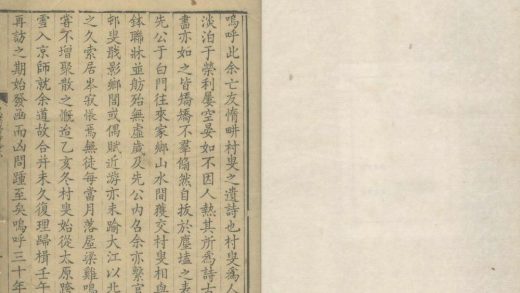 嗚呼此余亡友惰畊村叟之遺詩也村叟為人
淡泊于榮利屢空晏如不因人熱其所為詩古
畫亦如之皆矯矯不羣翛然自拔於塵壒之表
先公于白門往來家鄉山水間獲交村叟相與
鉢聯牀並舫殆無虛歲及先公內召余亦繫官
邨叟戢影鄉閭或偶賦近游亦未踰大江以北
之久索居岑寂悵焉無徒每當月落屋梁雞鳴
窅不增聚散之慨迨乙亥冬村叟始從太原跨
雪入京師就余道故合并未久復理歸楫壬午
再訪之期始發函而凶問踵至矣嗚呼三十年